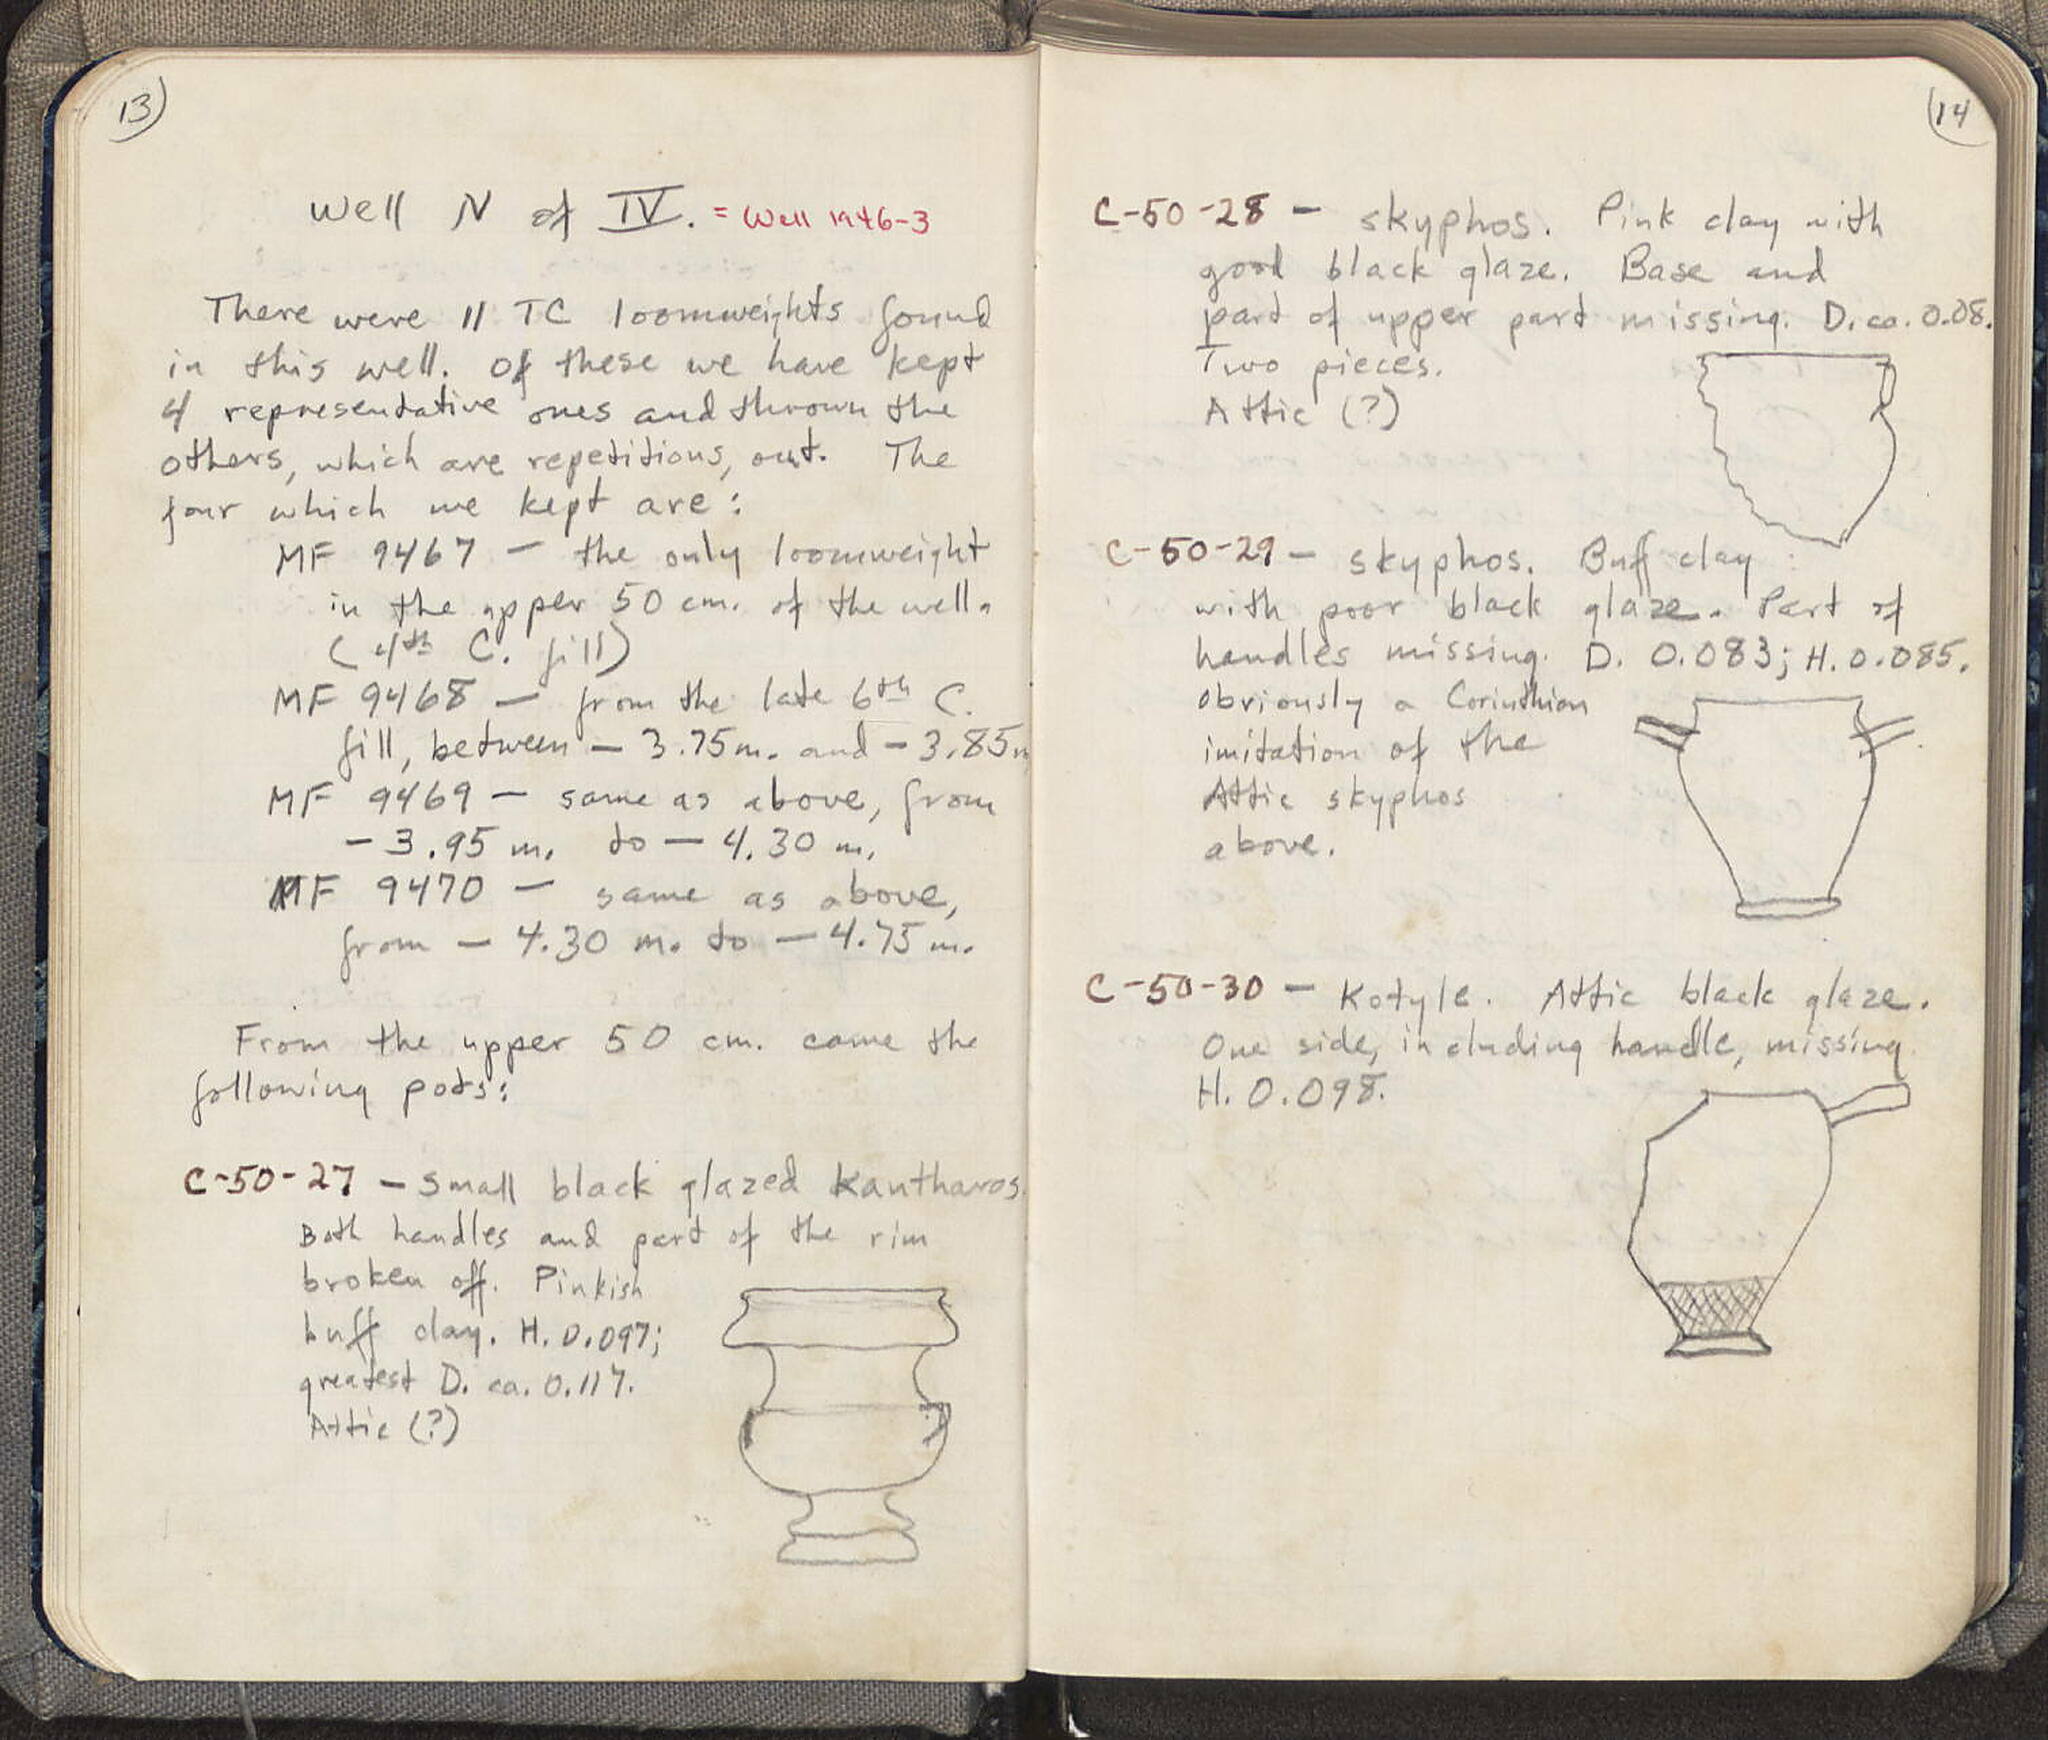 13
Well N of IV. = Well 1946-3
There were 11 TC loomweights found
in this well. Of these we have kept
4 representative ones and thrown the
others, which are repetitions, out. The
four which we kept are:
MF 9467 — the only loomweight
in the upper 50 cm. of the well.
(4th C. fill)
MF 9468 — from the late 6th C.
fill, between — 3.75 m. and — 3.85 m
MF 9469 — same as above, from
— 3.95 m. to — 4.30 m.
MF 9470 — same as above,
from — 4.30 m. to — 4.75 m.
From the upper 50 cm. came the
following pots:
C-50-27 — Small black glazed Kantharos.
Both handles and part of the rim
broken off. Pinkish
buff clay. H. 0.097;
greatest D. ca. 0.117.
Attic (?)
14
C-50-28 — skyphos. Pink clay with
good black glaze. Base and
part of upper part missing. D. ca. 0.08.
Two pieces.
Attic (?)
C-50-29 — skyphos. Buff clay
with poor black glaze. Part of
handles missing. D. 0.083; H. 0.085.
Obviously a Corinthian
imitation of the
Attic skyphos
above.
C-50-30 — Kotyle. Attic black glaze.
One side, including handle, missing
H. 0.098.